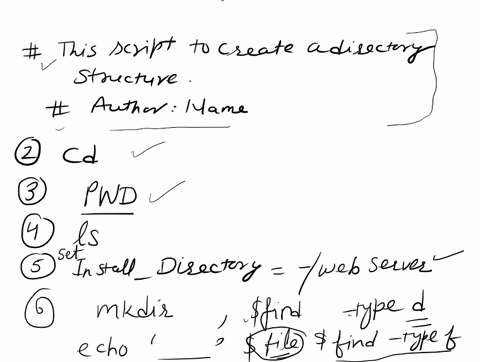 # This script to create a directory
Structure.
# Author: Name
② Cd
③ PWD
④ ls
⑤ set Install_Directory = ~/web Server
⑥ mkdir , $find -type d
echo ' ' $ file $ find -type f